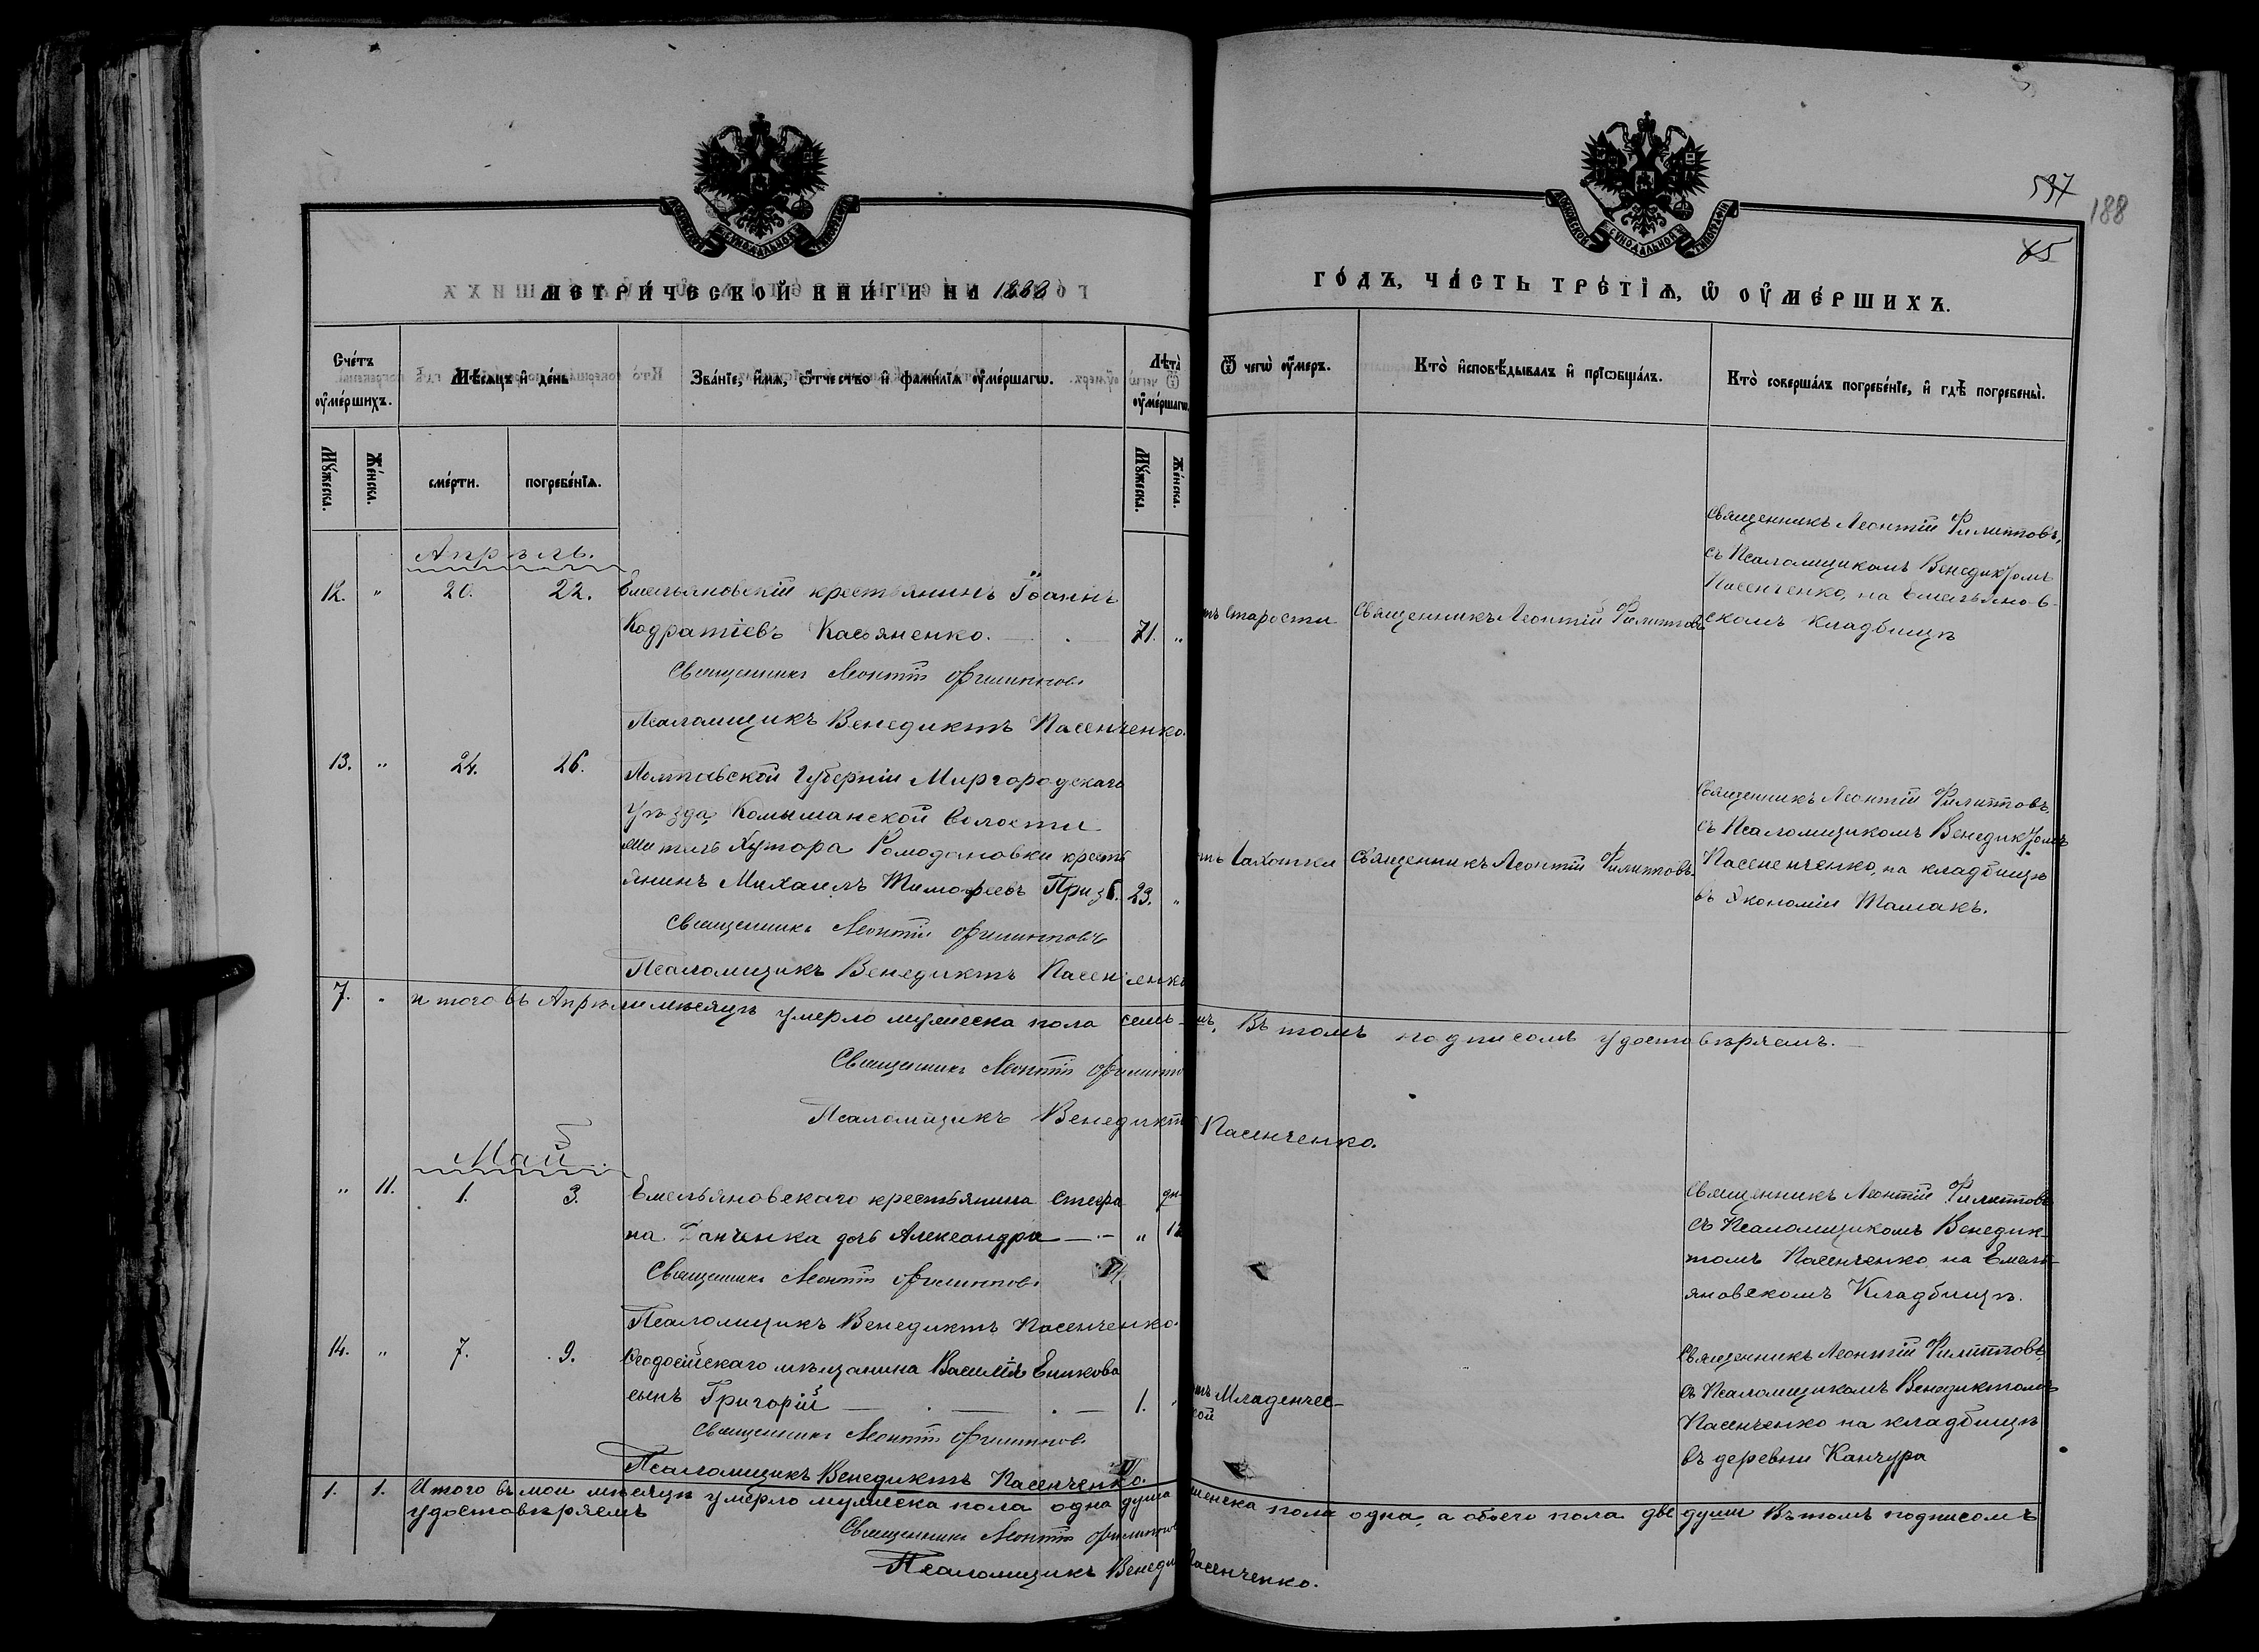 537
188
65
МЕТРИ́ЧЕСКОЙ КНИ́ГИ НА 1888
ГО́ДЪ, ЧА́СТЬ ТРЕ́ТІѦ, Ѡ ОУМЕ́РШИХЪ.
Сче́тъ оумершихъ.
Мужеска.
Женска.
Мѣсяцъ и день
смерти.
погребенїѧ.
Званїе, имѧ, ѿтчество и фамилїѧ оумершагѡ.
Лѣта оумершагѡ.
Мужеска.
Женска.
Ѿ чегѡ оумеръ.
Кто исповѣдывалъ и прїѡбщалъ.
Кто совершалъ погребенїе, и гдѣ погребены.
Апрѣль.
12. " 20. 22. Емельяновскій крестьянинъ Іоаннъ
Кодратіевъ Касьяненко. 71. "
Священникъ Леонтій Филипповъ
Псаломщикъ Венедиктъ Пасенченко.
отъ Старости
Священникъ Леонтій Филипповъ
Священникъ Леонтій Филипповъ,
съ Псаломщикомъ Венедиктомъ
Пасенченко, на Емельянов-
скомъ кладбищѣ
13. " 24. 26. Полтавской Губерніи Миргородскаго
Уѣзда, Комышанской Волости
житель Хутора Ромодановки кресть
янинъ Михаилъ Тимофеевъ 29. "
Священникъ Леонтій Филипповъ
Псаломщикъ Венедиктъ Пасенченко
отъ Чахотки
Священникъ Леонтій Филипповъ.
Священникъ Леонтій Филипповъ,
съ Псаломщикомъ Венедиктомъ
Пасененченко, на кладбищѣ
въ Экономіи Ташакъ.
7. " итого въ Апрѣли мѣсяцѣ умерло мужеска пола семь. Въ томъ подписомъ удостовѣряемъ.
Священникъ Леонтій Филиппо
Псаломщикъ Венедиктъ Пасенченко.
Май
" 11. 1. 3. Емельяновскаго крестьянина Стефа
на Данченка дочь Александра " 12
Священникъ Леонтій Филипповъ
Псаломщикъ Венедиктъ Пасенченко.
Священникъ Леонтій Филипповъ
съ Псаломщикомъ Венедик-
томъ Пасенченко, на Емель-
яновскомъ Кладбищѣ.
14. " 7. 9. Ѳеодосійскаго мѣщанина Василія Ешкова
сынъ Григорій 1. "
Священникъ Леонтій Филипповъ
Псаломщикъ Венедиктъ Пасенченко.
отъ Младенчес-
кой
Священникъ Леонтій Филипповъ,
съ Псаломщикомъ Венедиктомъ
Пасенченко на кладбищѣ
въ деревни Канчура
1. 1. Итого въ маи мѣсяцѣ умерло мужеска пола одна душа женска пола одна, а обоего пола две души Въ томъ подписомъ
удостовѣряемъ
Священникъ Леонтій Филиппов
Псаломщикъ Венеди Пасенченко.